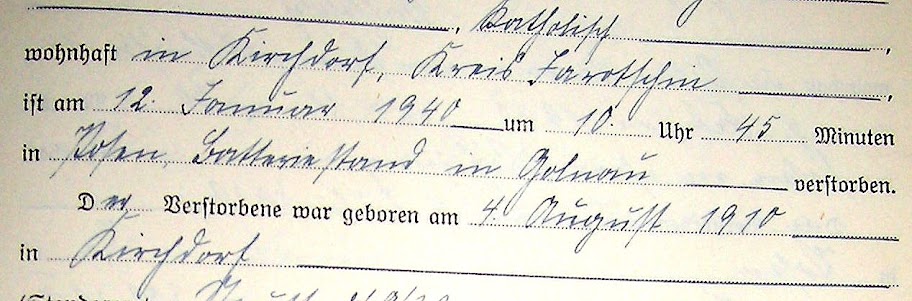 , katholisch,
wohnhaft in Kirchdorf, Kreis Jarotschin,
ist am 12. Januar 1940 um 10 Uhr 45 Minuten
in Posen, Batteriestand in Golnau verstorben.
Der Verstorbene war geboren am 4. August 1910
in Kirchdorf